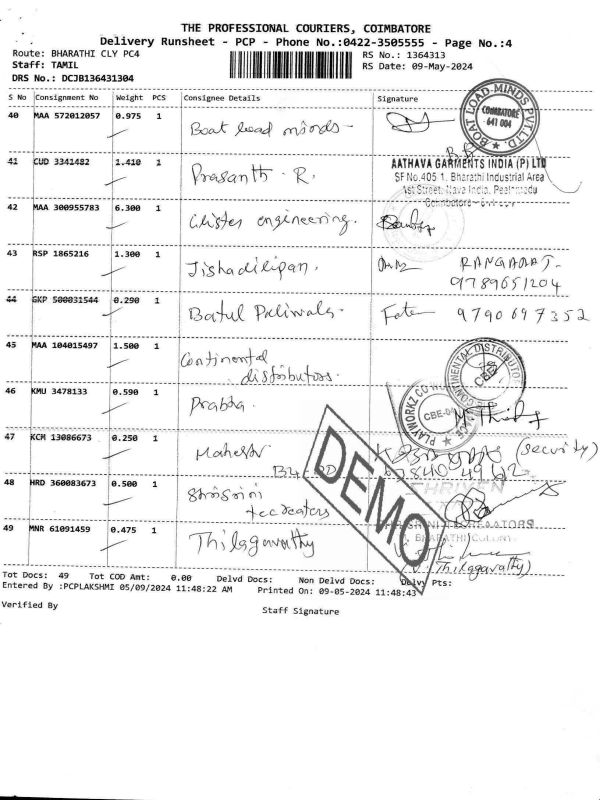 THE PROFESSIONAL COURIERS, COIMBATORE
Delivery Runsheet - PCP - Phone No.:0422-3505555 - Page No.:4
Route: BHARATHI CLY PC4
RS No.: 1364313
Staff: TAMIL
RS Date: 09-May-2024
DRS No.: DCJB136431304
S No Consignment No Weight PCS Consignee Details Signature
40 MAA 572012057 0.975 1 Boat load minds -
BOAT LOAD MINDS PVT LTD
COIMBATORE
641 004
41 CUD 3341482 1.410 1 Prasanth . R.
AATHAVA GARMENTS INDIA (P) LTD
SF No.405 1, Bharathi Industrial Area
1st Street, Nava India, Peelamedu
Coimbatore
42 MAA 300955783 6.300 1 engineering.
43 RSP 1865216 1.300 1 Jishadilipan. RANGARAJ-
9789651204
44 GKP 500031544 0.290 1 Batul Paliwala- 9790697352
45 MAA 104015497 1.500 1 Continental
distributors.
CONTINENTAL DISTRIBUTOR
CBE
46 KMU 3478133 0.590 1 Prabha.
PLAYWORKZ CO
CBE-04
47 KCM 13086673 0.250 1 (Security)
48 HRD 360083673 0.500 1
THRIVEN
49 MNR 61091459 0.475 1 Thilagavathy
BHARATHI COLONY
(Thilagavathy)
DEMO
Tot Docs: 49 Tot COD Amt: 0.00 Delvd Docs: Non Delvd Docs: Delvy Pts:
Entered By :PCPLAKSHMI 05/09/2024 11:48:22 AM Printed On: 09-05-2024 11:48:43
Verified By
Staff Signature